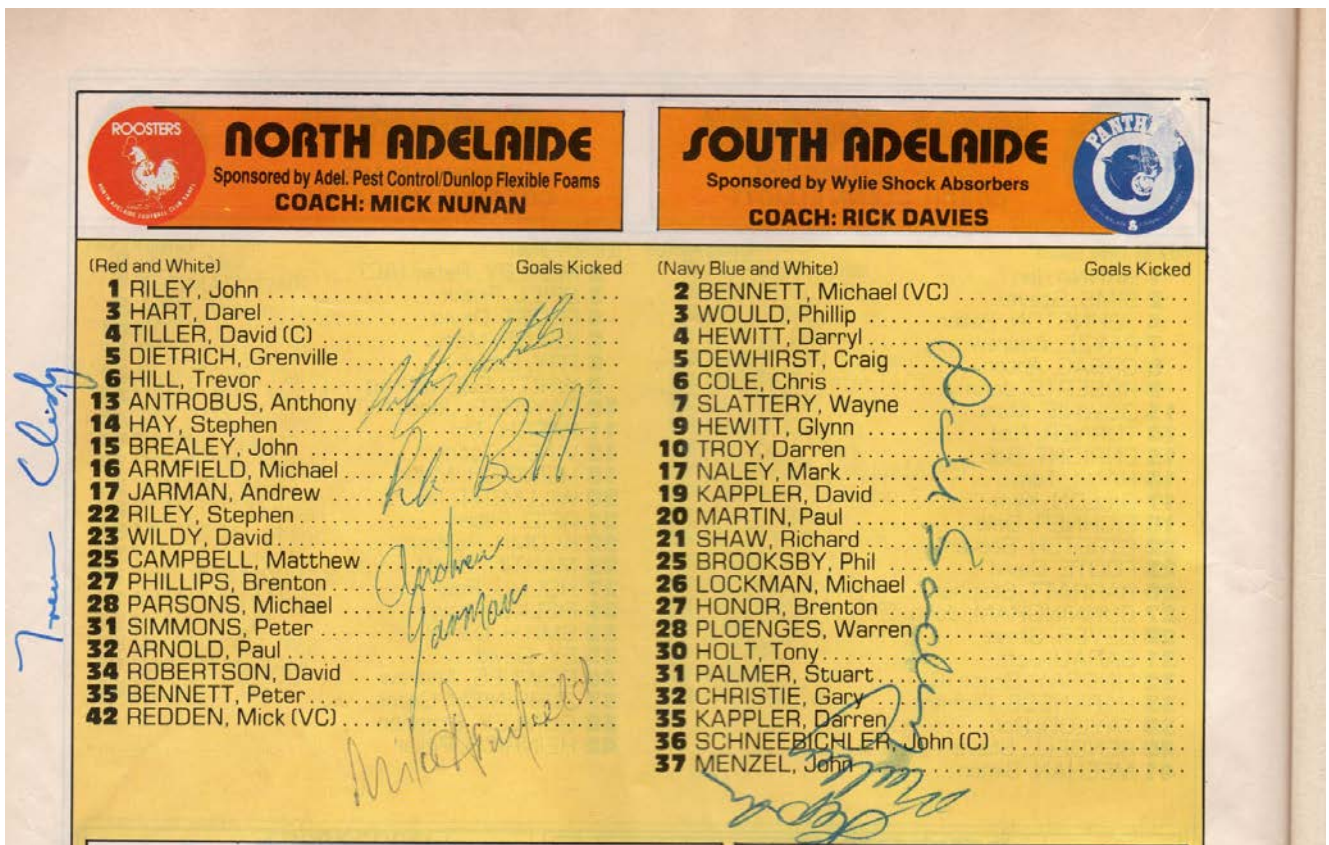 ROOSTERS
NORTH ADELAIDE
Sponsored by Adel. Pest Control/Dunlop Flexible Foams
COACH: MICK NUNAN
(Red and White) Goals Kicked
1 RILEY, John
3 HART, Darel
4 TILLER, David (C)
5 DIETRICH, Grenville
6 HILL, Trevor
13 ANTROBUS, Anthony
14 HAY, Stephen
15 BREALEY, John
16 ARMFIELD, Michael
17 JARMAN, Andrew
22 RILEY, Stephen
23 WILDY, David
25 CAMPBELL, Matthew
27 PHILLIPS, Brenton
28 PARSONS, Michael
31 SIMMONS, Peter
32 ARNOLD, Paul
34 ROBERTSON, David
35 BENNETT, Peter
42 REDDEN, Mick (VC)
Andrew
Jarman
Mike Armfield
SOUTH ADELAIDE
Sponsored by Wylie Shock Absorbers
COACH: RICK DAVIES
(Navy Blue and White) Goals Kicked
2 BENNETT, Michael (VC)
3 WOULD, Phillip
4 HEWITT, Darryl
5 DEWHIRST, Craig
6 COLE, Chris
7 SLATTERY, Wayne
9 HEWITT, Glynn
10 TROY, Darren
17 NALEY, Mark
19 KAPPLER, David
20 MARTIN, Paul
21 SHAW, Richard
25 BROOKSBY, Phil
26 LOCKMAN, Michael
27 HONOR, Brenton
28 PLOENGES, Warren
30 HOLT, Tony
31 PALMER, Stuart
32 CHRISTIE, Gary
35 KAPPLER, Darren
36 SCHNEEBICHLER, John (C)
37 MENZEL, John